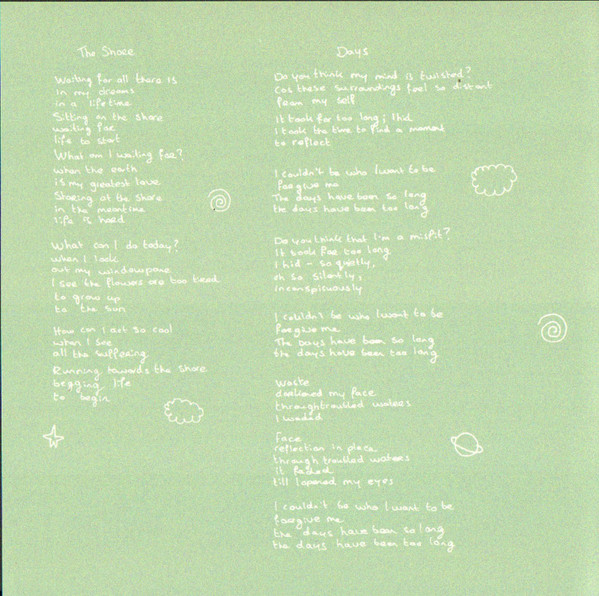 The Shore
Waiting for all there is
in my dreams
in a lifetime
Sitting on the shore
waiting for
life to start
What am I waiting for?
when the earth
is my greatest love
Staring at the shore
in the meantime
life is hard
What can I do today?
when I look
out my windowpane
I see the flowers are too tired
to grow up
to the sun
How can i act so cool
when I see
all the suffering
Running towards the shore
begging life
to begin
Days
Do you think my mind is twisted?
Cos these surroundings feel so distant
from my self
It took far too long, i hid
I took the time to find a moment
to reflect
I couldn't be who I want to be
forgive me
The days have been so long
the days have been too long
Do you think that I'm a misfit?
It took far too long
I hid - so quietly,
oh so silently,
inconspicuously
I couldn't be who I want to be
forgive me
The Days have been so long
the days have been too long
Waste
darkened my face
through troubled waters
I waded
Face
reflection in place
through troubled waters
it
till I opened my eyes
I couldn't be who I want to be
forgive me
the days have been so long
the days have been too long